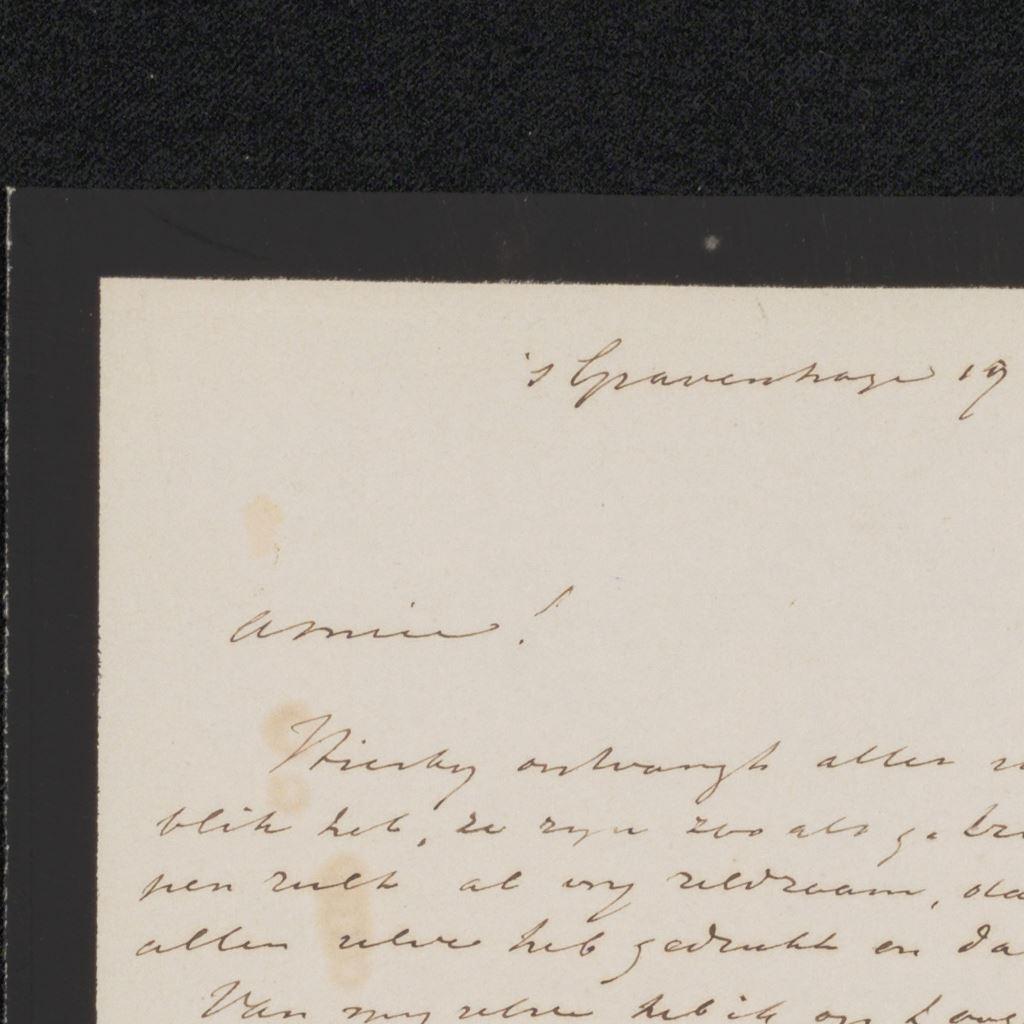 's Gravenhage 19
Amice!
Hierby ontvangt alles
blik heb, ze zyn zoo als ge
pen zult al vry zeldzaam, da
allen zelve heb gedrukt en da
Van my zelve heb ik op